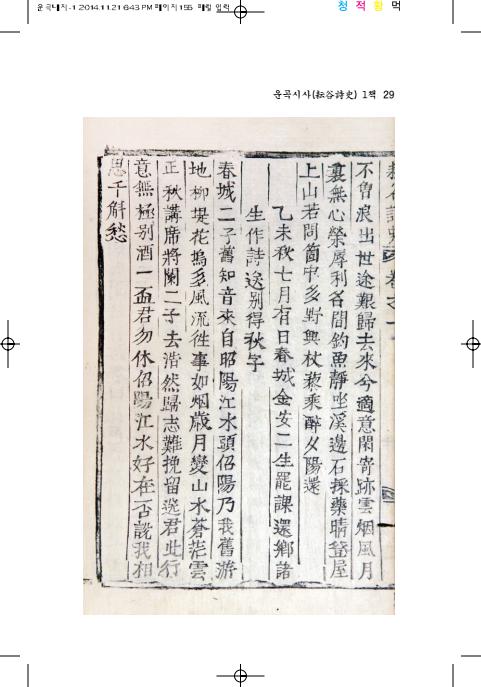 운곡내지-1 2014.11.21 6:43 PM 페이지 155 매킬 입력
청 적 황 먹
운곡시사(耘谷詩史) 1책 29
不曾浪出世途艱歸去來兮適意閑寄跡雲烟風月
裏無心榮辱利名間釣魚靜坐溪邊石採藥晴登屋
上山若問箇中多野興杖藜乘醉夕陽還
乙未秋七月有日春城金安二生罷課還鄕諸
生作詩送別得秋字
春城二子舊知音來自昭陽江水頭佋陽乃我舊游
地柳堤花塢多風流徃事如烟歲月變山水蒼茫雲
正秋講席將闌二子去浩然歸志難挽留送君此行
意無極別酒一盃君勿休佋陽江水好在否說我相
思千斛愁